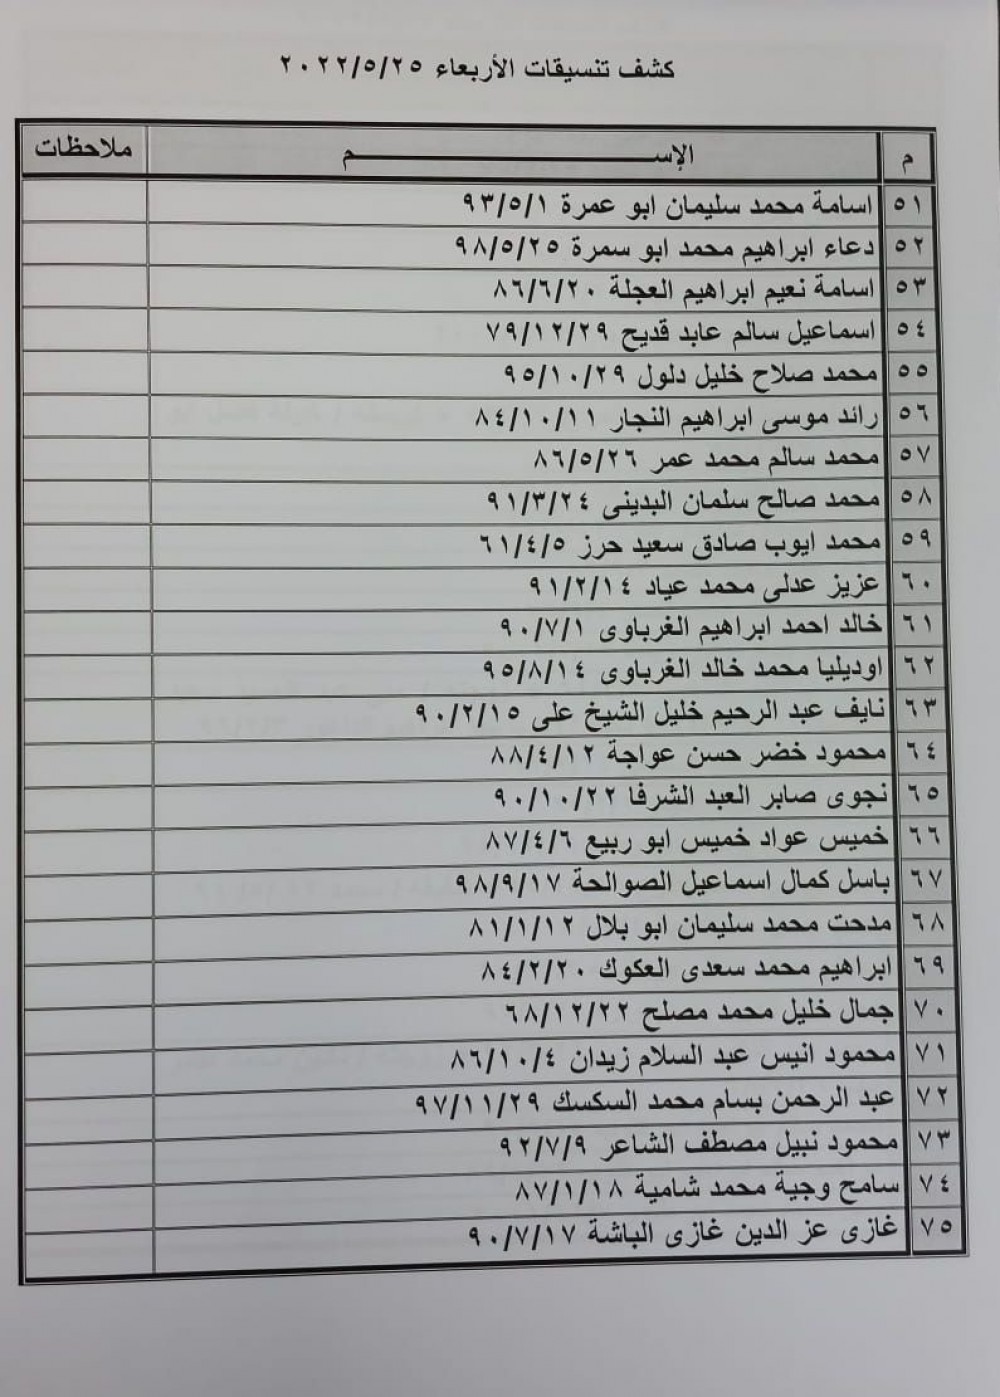 كشف تنسيقات الأربعاء ٢٠٢٢/٥/٢٥
م الإســــــــــم ملاحظات
٥١ اسامة محمد سليمان ابو عمرة ٩٣/٥/١
٥٢ دعاء ابراهيم محمد ابو سمرة ٩٨/٥/٢٥
٥٣ اسامة نعيم ابراهيم العجلة ٨٦/٦/٢٠
٥٤ اسماعيل سالم عابد قديح ٧٩/١٢/٢٩
٥٥ محمد صلاح خليل دلول ٩٥/١٠/٢٩
٥٦ رائد موسى ابراهيم النجار ٨٤/١٠/١١
٥٧ محمد سالم محمد عمر ٨٦/٥/٢٦
٥٨ محمد صالح سلمان البدينى ٩١/٣/٢٤
٥٩ محمد ايوب صادق سعيد حرز ٦١/٤/٥
٦٠ عزيز عدلى محمد عياد ٩١/٢/١٤
٦١ خالد احمد ابراهيم الغرباوى ٩٠/٧/١
٦٢ اوديليا محمد خالد الغرباوى ٩٥/٨/١٤
٦٣ نايف عبد الرحيم خليل الشيخ على ٩٠/٢/١٥
٦٤ محمود خضر حسن عواجة ٨٨/٤/١٢
٦٥ نجوى صابر العبد الشرفا ٩٠/١٠/٢٢
٦٦ خميس عواد خميس ابو ربيع ٨٧/٤/٦
٦٧ باسل كمال اسماعيل الصوالحة ٩٨/٩/١٧
٦٨ مدحت محمد سليمان ابو بلال ٨١/١/١٢
٦٩ ابراهيم محمد سعدى العكوك ٨٤/٢/٢٠
٧٠ جمال خليل محمد مصلح ٦٨/١٢/٢٢
٧١ محمود انيس عبد السلام زيدان ٨٦/١٠/٤
٧٢ عبد الرحمن بسام محمد السكسك ٩٧/١١/٢٩
٧٣ محمود نبيل مصطف الشاعر ٩٢/٧/٩
٧٤ سامح وجية محمد شامية ٨٧/١/١٨
٧٥ غازى عز الدين غازى الباشة ٩٠/٧/١٧